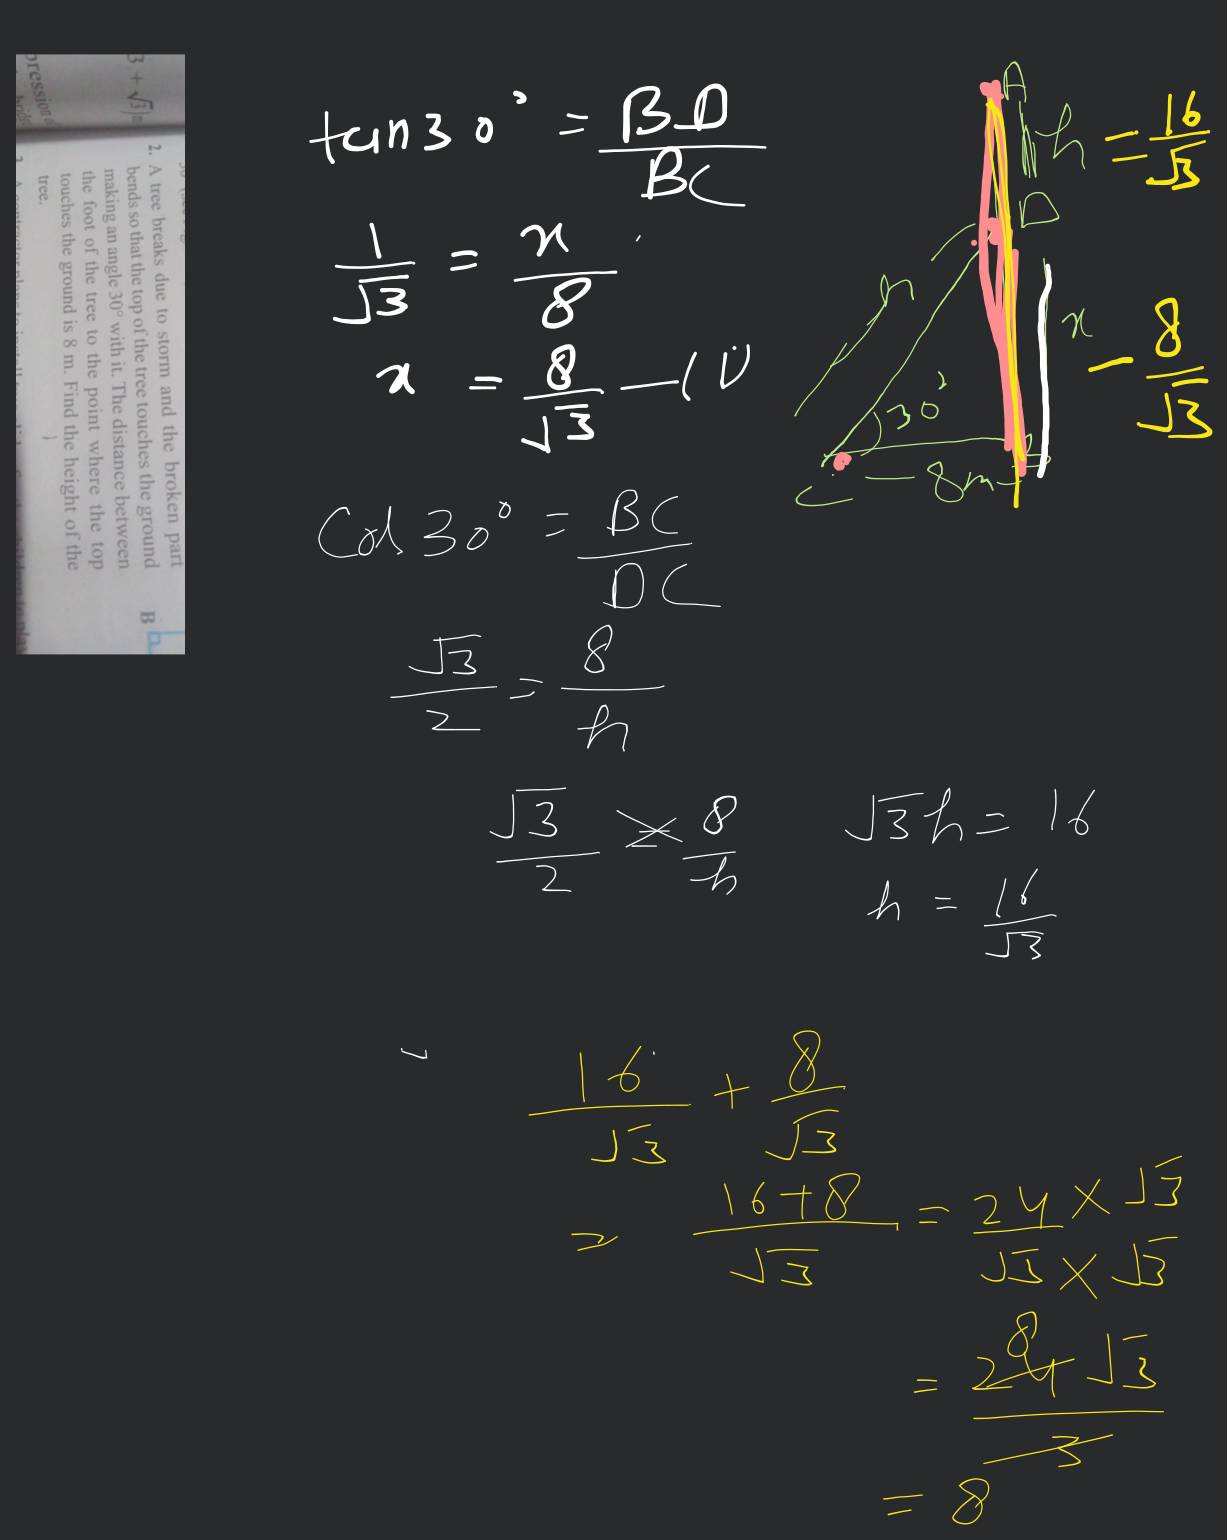 3 + √3) m
pression
2. A tree breaks due to storm and the broken part
bends so that the top of the tree touches the ground
making an angle 30° with it. The distance between
the foot of the tree to the point where the top
touches the ground is 8 m. Find the height of the
tree.
B
tan30° = BD/BC
1/√3 = x/8
x = 8/√3 —(i)
A
h = 16/√3
D
h
x – 8/√3
30°
C – 8m –
Cos 30° = BC/DC
√3/2 = 8/h
√3/2 = 8/h
√3h = 16
h = 16/√3
16/√3 + 8/√3
= 16+8/√3 = 24 × √3/√3 × √3
= 24√3/3
8
= 8